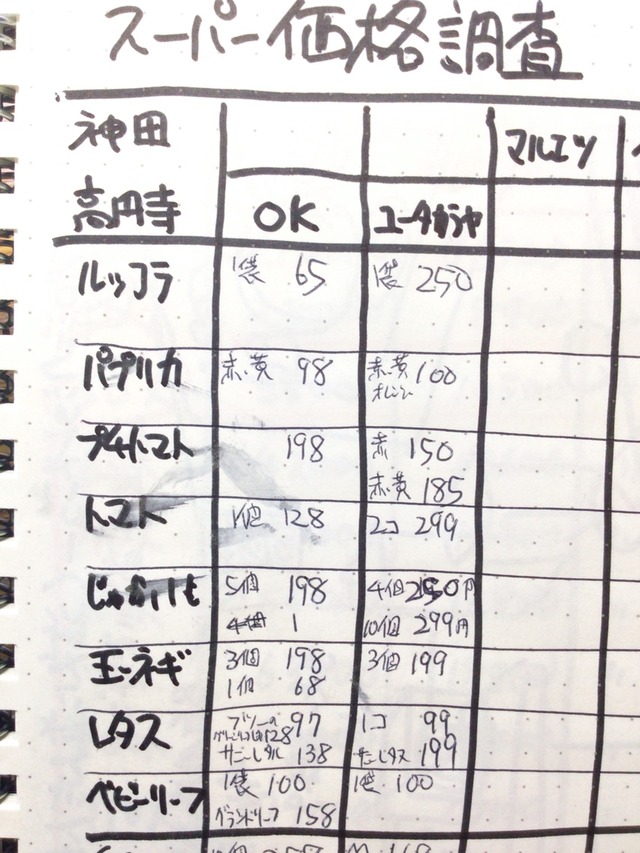 スーパー価格調査
神田
マルエツ
高円寺 OK ユータカラヤ
ルッコラ 1袋 65 1袋 250
パプリカ 赤・黄 98 赤・黄 100
オレンジ
プチトマト 198 赤 150
赤・黄 185
トマト 1個 128 2コ 299
じゃがいも 5個 198 4個 250円
4個 1 10個 299円
玉ネギ 3個 198 3個 199
1個 68
レタス 97 1コ 99
128
サニーレタス 138 サニーレタス 199
ベビーリーフ 1袋 100 1袋 100
グランドリーフ 158